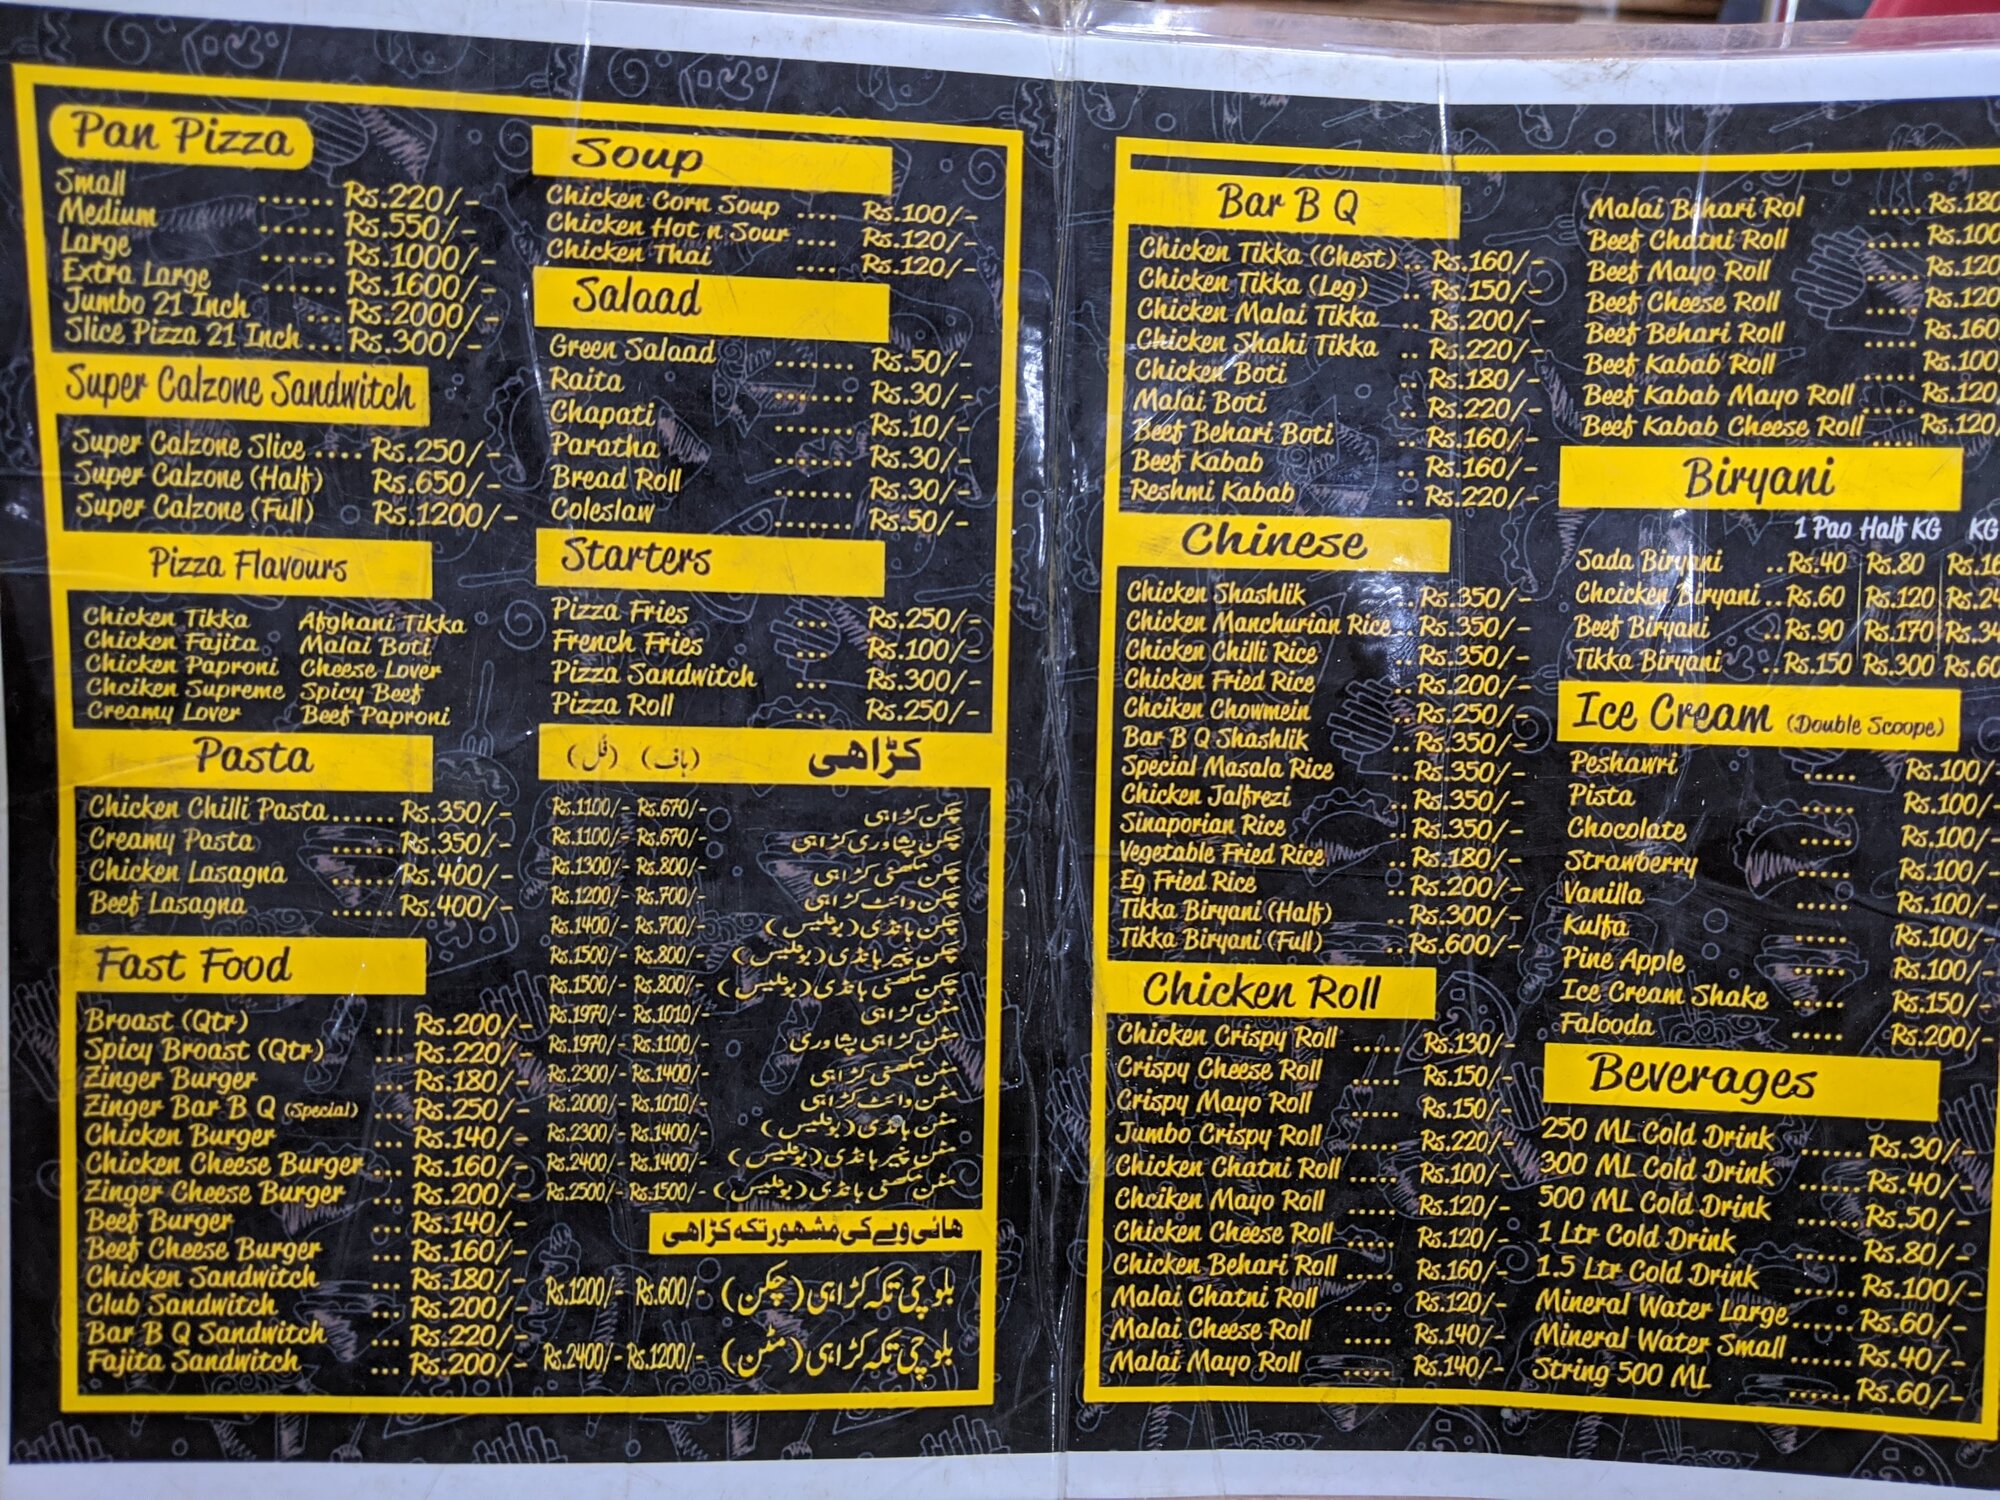 Pan Pizza
Small ...... Rs.220/-
Medium ...... Rs.550/-
Large ...... Rs.1000/-
Extra Large ...... Rs.1600/-
Jumbo 21 Inch ... Rs.2000/-
Slice Pizza 21 Inch ... Rs.300/-
Super Calzone Sandwitch
Super Calzone Slice .... Rs.250/-
Super Calzone (Half) Rs.650/-
Super Calzone (Full) Rs.1200/-
Pizza Flavours
Chicken Tikka Afghani Tikka
Chicken Fajita Malai Boti
Chicken Paproni Cheese Lover
Chciken Supreme Spicy Beef
Creamy Lover Beef Paproni
Pasta
Chicken Chilli Pasta ...... Rs.350/-
Creamy Pasta ...... Rs.350/-
Chicken Lasagna ...... Rs.400/-
Beef Lasagna ...... Rs.400/-
Fast Food
Broast (Qtr) ... Rs.200/-
Spicy Broast (Qtr) ... Rs.220/-
Zinger Burger ... Rs.180/-
Zinger Bar B Q (Special) ... Rs.250/-
Chicken Burger ... Rs.140/-
Chicken Cheese Burger ... Rs.160/-
Zinger Cheese Burger ... Rs.200/-
Beef Burger ... Rs.140/-
Beef Cheese Burger ... Rs.160/-
Chicken Sandwitch ... Rs.180/-
Club Sandwitch ... Rs.200/-
Bar B Q Sandwitch ... Rs.220/-
Fajita Sandwitch ... Rs.200/-
Soup
Chicken Corn Soup .... Rs.100/-
Chicken Hot n Sour .... Rs.120/-
Chicken Thai .... Rs.120/-
Salaad
Green Salaad ....... Rs.50/-
Raita ....... Rs.30/-
Chapati ....... Rs.10/-
Paratha ....... Rs.30/-
Bread Roll ....... Rs.30/-
Coleslaw ....... Rs.50/-
Starters
Pizza Fries ... Rs.250/-
French Fries ... Rs.100/-
Pizza Sandwitch ... Rs.300/-
Pizza Roll ... Rs.250/-
کڑاھی (ہاف) (فل)
چکن کڑاہی Rs.670/- Rs.1100/-
چکن پشاوری کڑاہی Rs.670/- Rs.1100/-
چکن مکھنی کڑاہی Rs.800/- Rs.1300/-
چکن وائٹ کڑاہی Rs.700/- Rs.1200/-
چکن ہانڈی (بونلیس) Rs.700/- Rs.1400/-
چکن پنیر ہانڈی (بونلیس) Rs.800/- Rs.1500/-
چکن مکھنی ہانڈی (بونلیس) Rs.800/- Rs.1500/-
مٹن کڑاہی Rs.1010/- Rs.1970/-
مٹن کڑاہی پشاوری Rs.1100/- Rs.1970/-
مٹن مکھنی کڑاہی Rs.1400/- Rs.2300/-
مٹن وائٹ کڑاہی Rs.1010/- Rs.2000/-
مٹن ہانڈی (بونلیس) Rs.1400/- Rs.2300/-
مٹن پنیر ہانڈی (بونلیس) Rs.1400/- Rs.2400/-
مٹن مکھنی ہانڈی (بونلیس) Rs.1500/- Rs.2500/-
ھائی وے کی مشھور تکہ کڑاھی
بلوچی تکہ کڑاہی (چکن) Rs.600/- Rs.1200/-
بلوچی تکہ کڑاہی (مٹن) Rs.1200/- Rs.2400/-
Bar B Q
Chicken Tikka (Chest) .. Rs.160/-
Chicken Tikka (Leg) .. Rs.150/-
Chicken Malai Tikka .. Rs.200/-
Chicken Shahi Tikka .. Rs.220/-
Chicken Boti .. Rs.180/-
Malai Boti .. Rs.220/-
Beef Behari Boti .. Rs.160/-
Beef Kabab .. Rs.160/-
Reshmi Kabab .. Rs.220/-
Chinese
Chicken Shashlik .. Rs.350/-
Chicken Manchurian Rice .. Rs.350/-
Chicken Chilli Rice .. Rs.350/-
Chicken Fried Rice .. Rs.200/-
Chciken Chowmein .. Rs.250/-
Bar B Q Shashlik .. Rs.350/-
Special Masala Rice .. Rs.350/-
Chicken Jalfrezi .. Rs.350/-
Sinaporian Rice .. Rs.350/-
Vegetable Fried Rice .. Rs.180/-
Eg Fried Rice .. Rs.200/-
Tikka Biryani (Half) .. Rs.300/-
Tikka Biryani (Full) .. Rs.600/-
Chicken Roll
Chicken Crispy Roll ..... Rs.130/-
Crispy Cheese Roll ..... Rs.150/-
Crispy Mayo Roll ..... Rs.150/-
Jumbo Crispy Roll ..... Rs.220/-
Chicken Chatni Roll ..... Rs.100/-
Chciken Mayo Roll ..... Rs.120/-
Chicken Cheese Roll ..... Rs.120/-
Chicken Behari Roll ..... Rs.160/-
Malai Chatni Roll ..... Rs.120/-
Malai Cheese Roll ..... Rs.140/-
Malai Mayo Roll ..... Rs.140/-
Malai Behari Rol ..... Rs.180
Beef Chatni Roll ..... Rs.100
Beef Mayo Roll ..... Rs.120
Beef Cheese Roll ..... Rs.120
Beef Behari Roll ..... Rs.160
Beef Kabab Roll ..... Rs.100
Beef Kabab Mayo Roll ..... Rs.120
Beef Kabab Cheese Roll .... Rs.120/
Biryani
1 Pao Half KG KG
Sada Biryani .. Rs.40 Rs.80 Rs.16
Chcicken Biryani .. Rs.60 Rs.120 Rs.24
Beef Biryani .. Rs.90 Rs.170 Rs.34
Tikka Biryani .. Rs.150 Rs.300 Rs.60
Ice Cream (Double Scoope)
Peshawri ..... Rs.100/-
Pista ..... Rs.100/-
Chocolate ..... Rs.100/-
Strawberry ..... Rs.100/-
Vanilla ..... Rs.100/-
Kulfa ..... Rs.100/-
Pine Apple ..... Rs.100/-
Ice Cream Shake ..... Rs.150/-
Falooda ..... Rs.200/-
Beverages
250 ML Cold Drink ...... Rs.30/-
300 ML Cold Drink ...... Rs.40/-
500 ML Cold Drink ...... Rs.50/-
1 Ltr Cold Drink ...... Rs.80/-
1.5 Ltr Cold Drink ...... Rs.100/-
Mineral Water Large ...... Rs.60/-
Mineral Water Small ...... Rs.40/-
String 500 ML ...... Rs.60/-